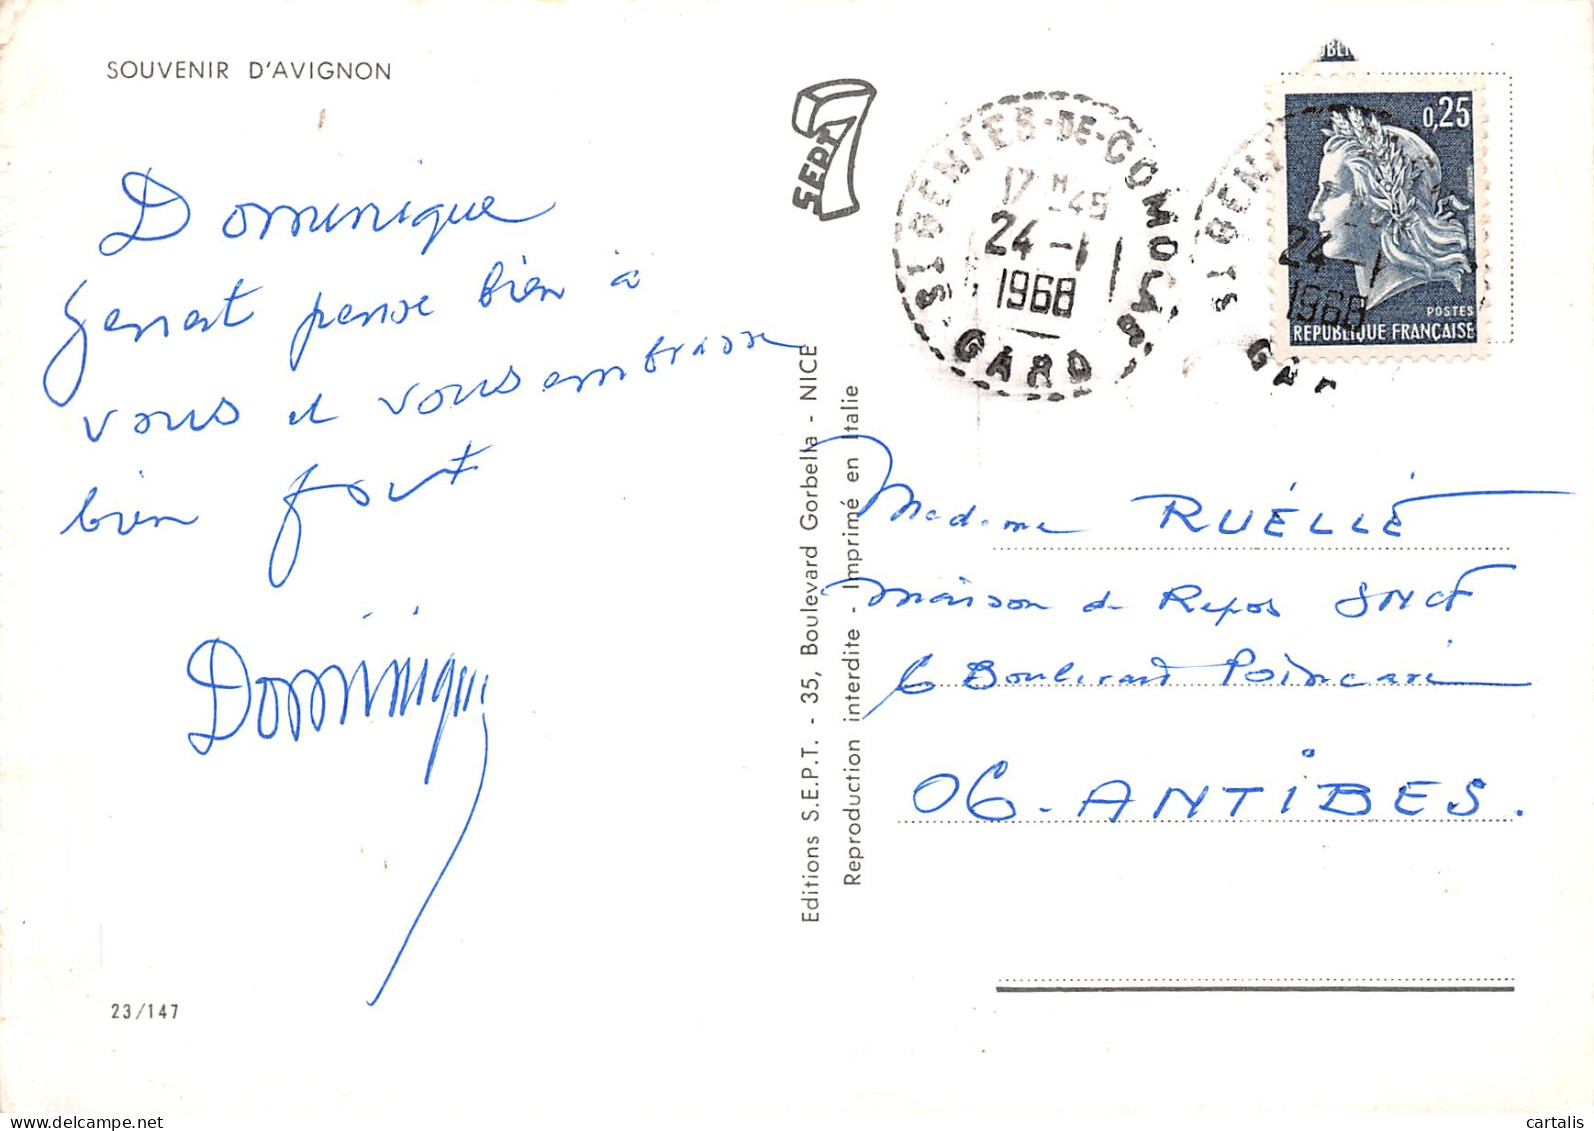 SOUVENIR D'AVIGNON
Dominique
pense bien à
vous et vous embrasse
bien fort
Dominique
23/147
Editions S.E.P.T. - 35, Boulevard Gorbella - NICE
Reproduction interdite - Imprimé en Italie
SEPT 7
ST GENIES-DE-COMOLAS
17 H 45
24 -1
1968
GARD
ST GENI
24 -1
1968
GAR
0,25
POSTES
REPUBLIQUE FRANÇAISE
Madame RUÉLLÉ
Maison de Repos SNCF
6 Boulevard Poincaré
06 - ANTIBES.
cartalis
delcampe.net